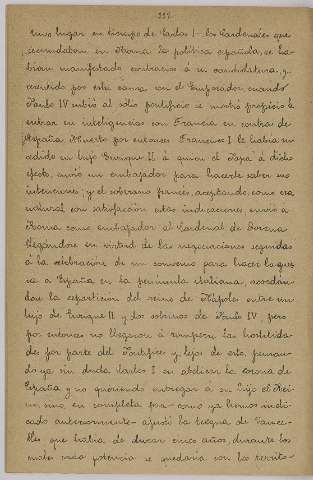 222
tuvo lugar en tiempo de Carlos I - los Cardenales que
secundaban en Roma la política española, se ha-
bían manifestado contrarios á su candidatura, y
resentido por esta causa con el Emperador, cuando
Paulo IV subió al solio pontificio se mostró propicio á
entrar en inteligencias con Francia en contra de
España. Muerto por entonces Francisco I le había su-
cedido su hijo Enrique II á quien el Papa á dicho
efecto, envió un embajador para hacerle saber sus
intenciones; y el soberano francés, aceptando como era
natural con satisfacción estas indicaciones envió á
Roma como embajador al Cardenal de Lorena
llegándose en virtud de las negociaciones seguidas
á la celebración de un convenio para hacer la gue-
rra á España en la península italiana, acordán-
dose la repartición del reino de Nápoles entre un
hijo de Enrique II y los sobrinos de Paulo IV, pero
por entonces no llegaron á romperse las hostilida-
des por parte del Pontífice, y lejos de esto, pensan-
do ya sin duda Carlos I en abdicar la corona de
España y no queriendo entregar á su hijo el Rei-
no, sino en completa paz - como ya hemos indi-
cado anteriormente - ajustó la tregua de Vauce-
lles que había de durar cinco años, durante los
cuales cada potencia se quedaría con los territo-